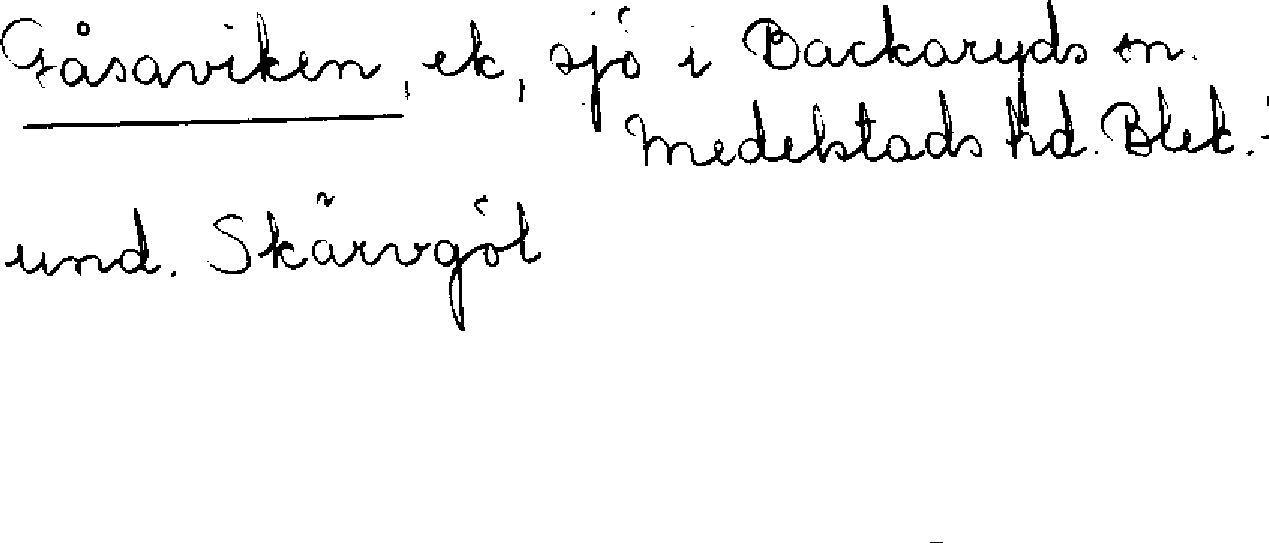 Gåsaviken, ek, sjö i Backaryds sn.
Medelstads hd. Blek.
und. Skärvgöl